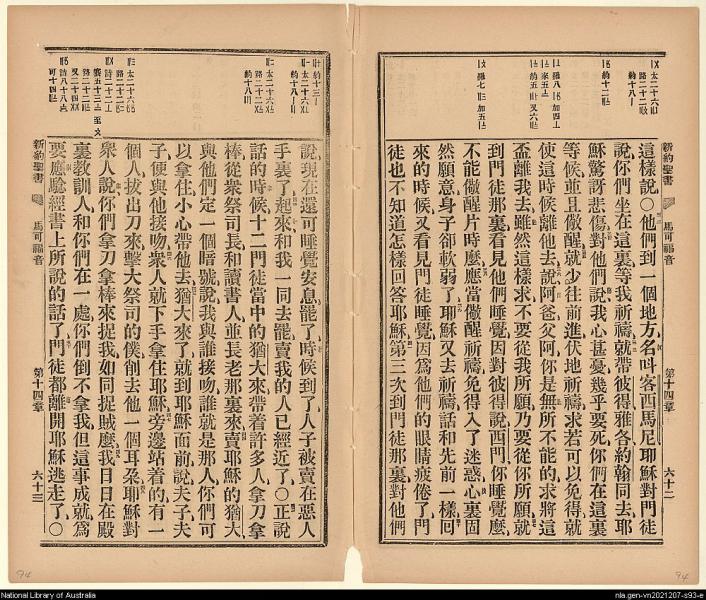 這樣說○他們到一個地方名叫客西馬尼耶穌對門徒
說你們坐在這裏等我祈禱就帶彼得雅各約翰同去耶
穌驚訝悲傷對他們說我心甚憂幾乎要死你們在這裏
等候並且儆醒就少往前進伏地祈禱求若可以免得就
使這時候離他去說阿爸父阿你是無所不能的求將這
盃離我去雖然這樣求不要從我所願乃要從你所願就
到門徒那裏看見他們睡覺因對彼得說西門你睡覺麼
不能儆醒片時麼應當儆醒祈禱免得入了迷惑心裏固
然願意身子卻軟弱了耶穌又去祈禱話和先前一樣回
來的時候又看見門徒睡覺因爲他們的眼睛疲倦了門
徒也不知道怎樣回答耶穌第三次到門徒那裏對他們
新約聖書
馬可福音
第十四章
六十二
說現在還可睡覺安息罷了時候到了人子被賣在惡人
手裏了起來和我一同去罷賣我的人已經近了○正說
話的時候十二門徒當中的猶大來帶着許多人拿刀拿
棒從衆祭司長和讀書人並長老那裏來賣耶穌的猶大
與他們定一個暗號說我與誰接吻誰就是那人你們可
以拿住小心帶他去猶大來了就到耶穌面前說夫子夫
子便與他接吻衆人就下手拿住耶穌旁邊站着的有一
個人拔出刀來擊大祭司的僕削去他一個耳朶耶穌對
衆人說你們拿刀拿棒來捉我如同捉賊麼我日日在殿
裏教訓人和你們在一處你們倒不拿我但這事成就爲
要應驗經書上所說的話了門徒都離開耶穌逃走了○
新約聖書
馬可福音
第十四章
六十三
94
94
National Library of Australia
nla.gen-vn2021207-s93-e